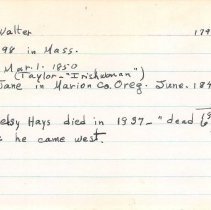 Walter 179
98 in Mass.
Mar. 1. 1850
(Taylor - "Irishwoman")
Jane in Marion Co. Oreg. June. 184
Betsy Hays died in 1937 - "dead
he came west.